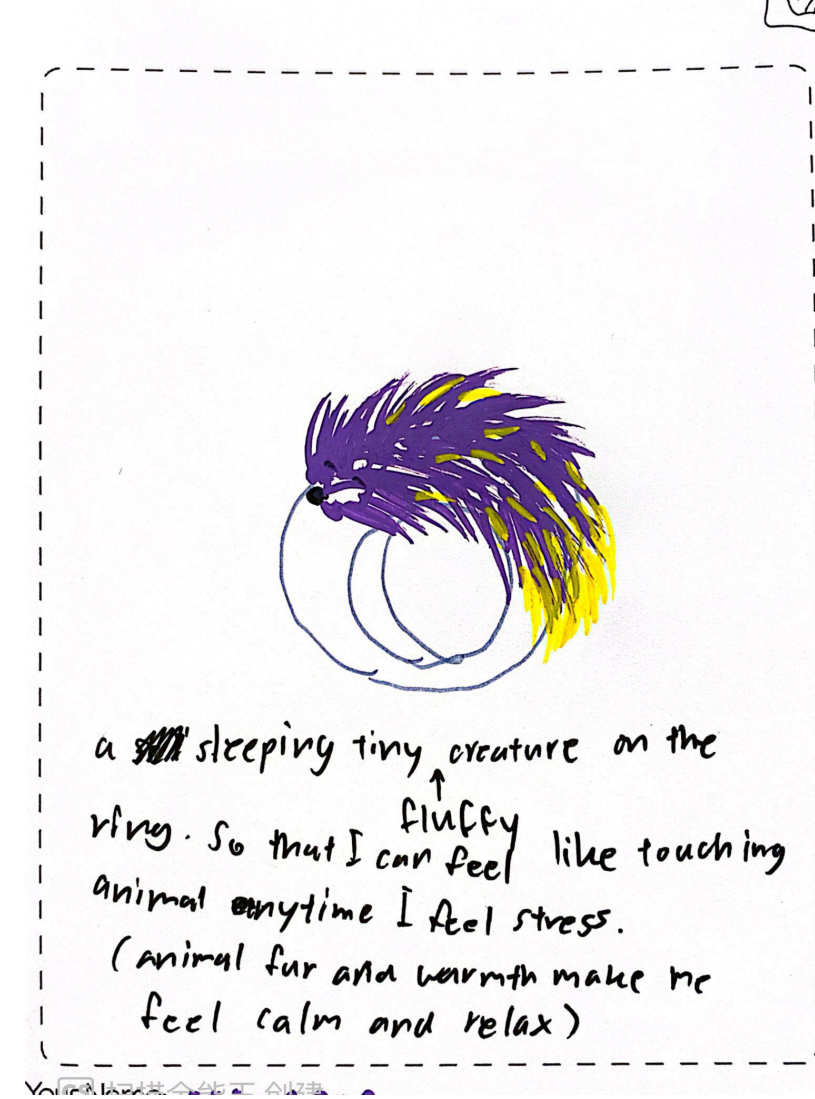 a sleeping tiny creature on the
fluffy
ring. So that I can feel like touching
animal anytime I feel stress.
(animal fur and warmth make me
feel calm and relax)
Your Name:
CS 扫描全能王 创建